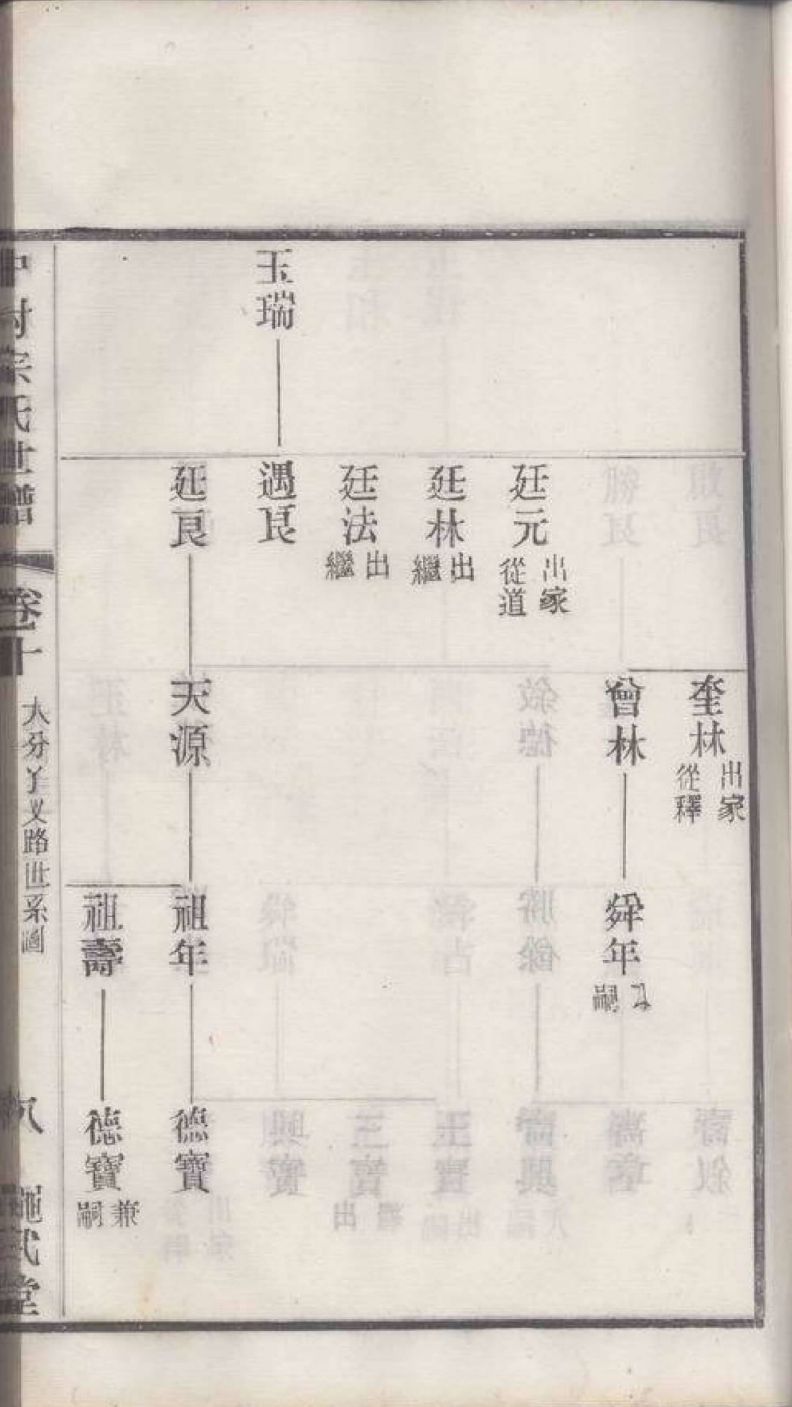 玉瑞
廷元 出家從道
廷林 出繼
廷法 出繼
遇良
廷良
奎林 出家從釋
曾林
天源
舜年
祖年
祖壽
德寶
德寶 兼嗣
宗氏世譜
卷十
大分丫叉路世系圖